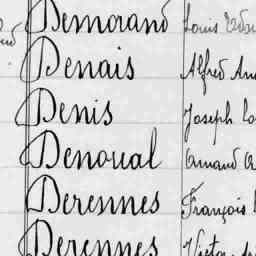 Demorand Louis
Denais Alfred
Denis Joseph
Denoual Amand
Derennes François
Derennes Victor